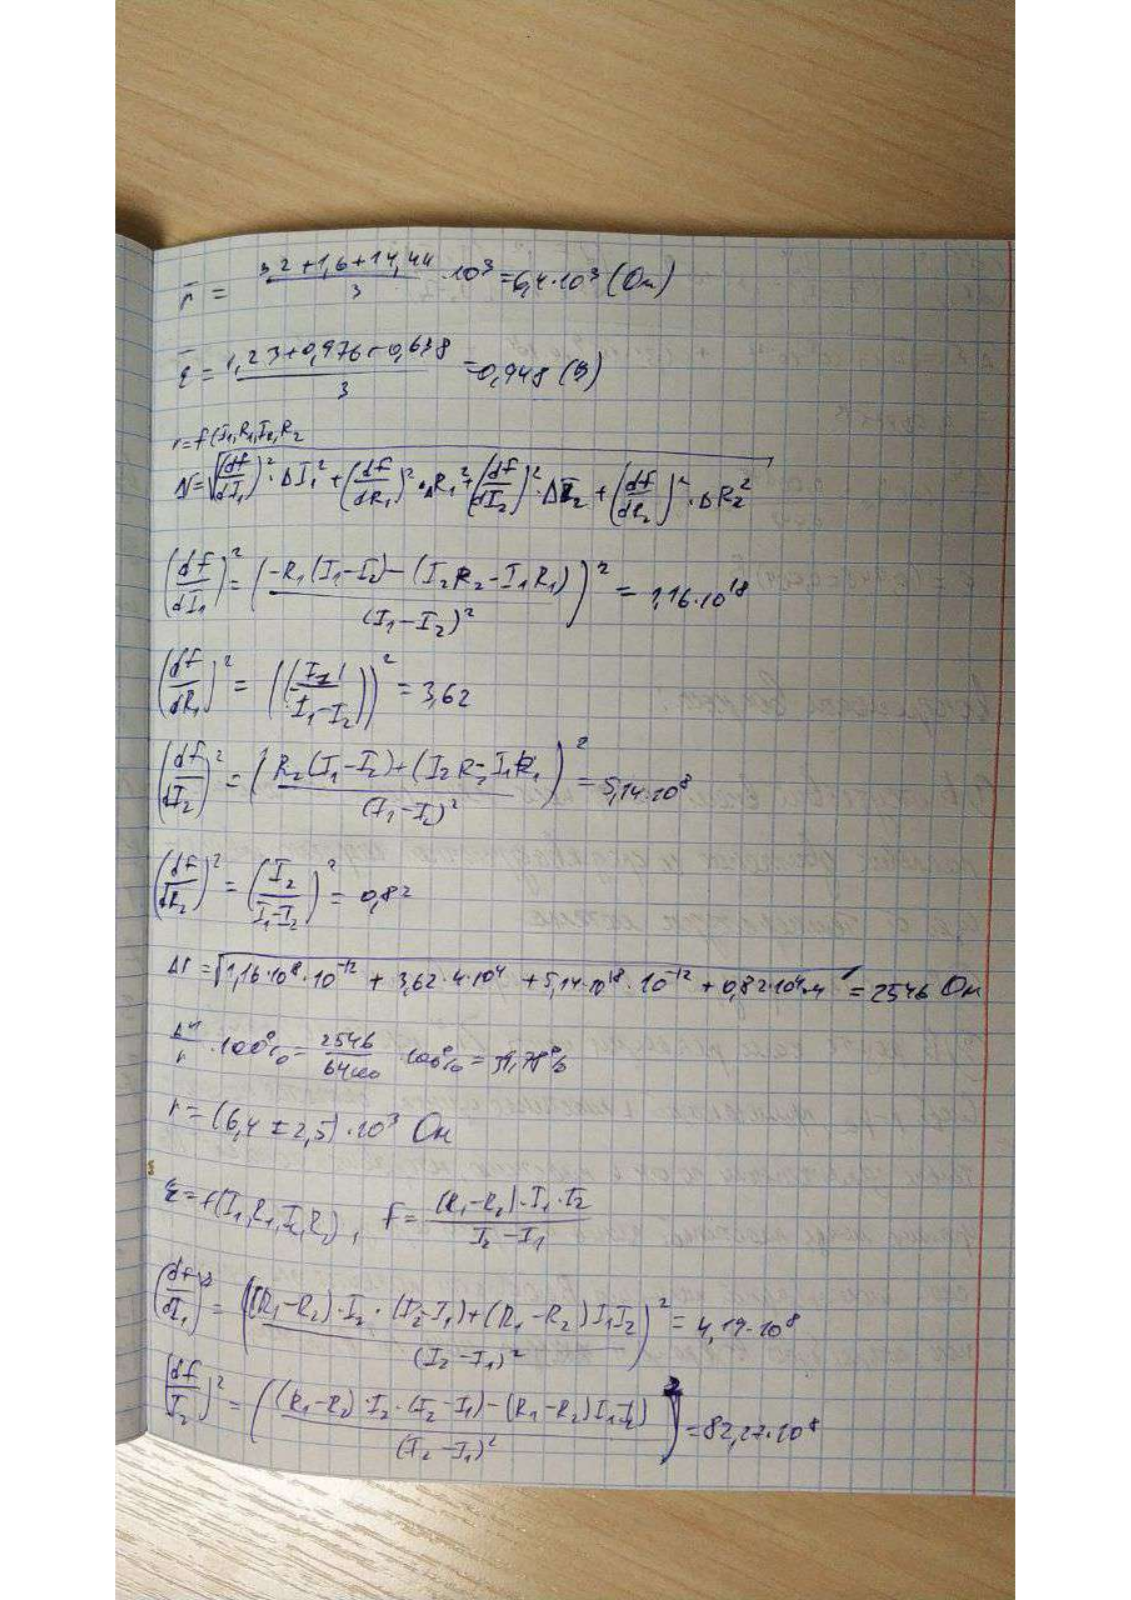 r̄ = (3,2+1,6+14,44)/3 ·10³ = 6,4·10³ (Ом)
ε̄ = (1,23+0,976+0,638)/3 = 0,948 (В)
r = f(I₁,R₁,I₂,R₂
Δr = √((df/dI₁)²·ΔI₁² + (df/dR₁)²·ΔR₁² + (df/dI₂)²·ΔI₂ + (df/dR₂)²·ΔR₂²
(df/dI₁)² = ((-R₁(I₁-I₂)-(I₂R₂-I₁R₁))/(I₁-I₂)²)² = 1,16·10¹⁸
(df/dR₁)² = ((I₁/(I₁-I₂)))² = 3,62
(df/dI₂)² = ((R₂(I₁-I₂)+(I₂R₂-I₁R₁)/(I₁-I₂)²)² = 5,14·10⁸
(df/dR₂)² = (I₂/(I₁-I₂))² = 0,82
Δr = √(1,16·10⁸·10⁻¹² + 3,62·4·10⁴ + 5,14·10¹⁸·10⁻¹² + 0,82·10⁴·4) = 2546 Ом
Δr/r ·100% = 2546/6400 100% = 39,78%
r = (6,4 ± 2,5)·10³ Ом
ε = f(I₁,R₁,I₂,R₂), f = (R₁-R₂)·I₁·I₂/(I₂-I₁)
(df/dI₁)² = (((R₁-R₂)·I₂·(I₂-I₁)+(R₁-R₂)I₁I₂)/(I₂-I₁)²)² = 4,19·10⁸
(df/I₂)² = (((R₁-R₂)·I₂·(I₂-I₁)-(R₁-R₂)I₁I₂)/(I₂-I₁)²)² = 82,27·10⁸